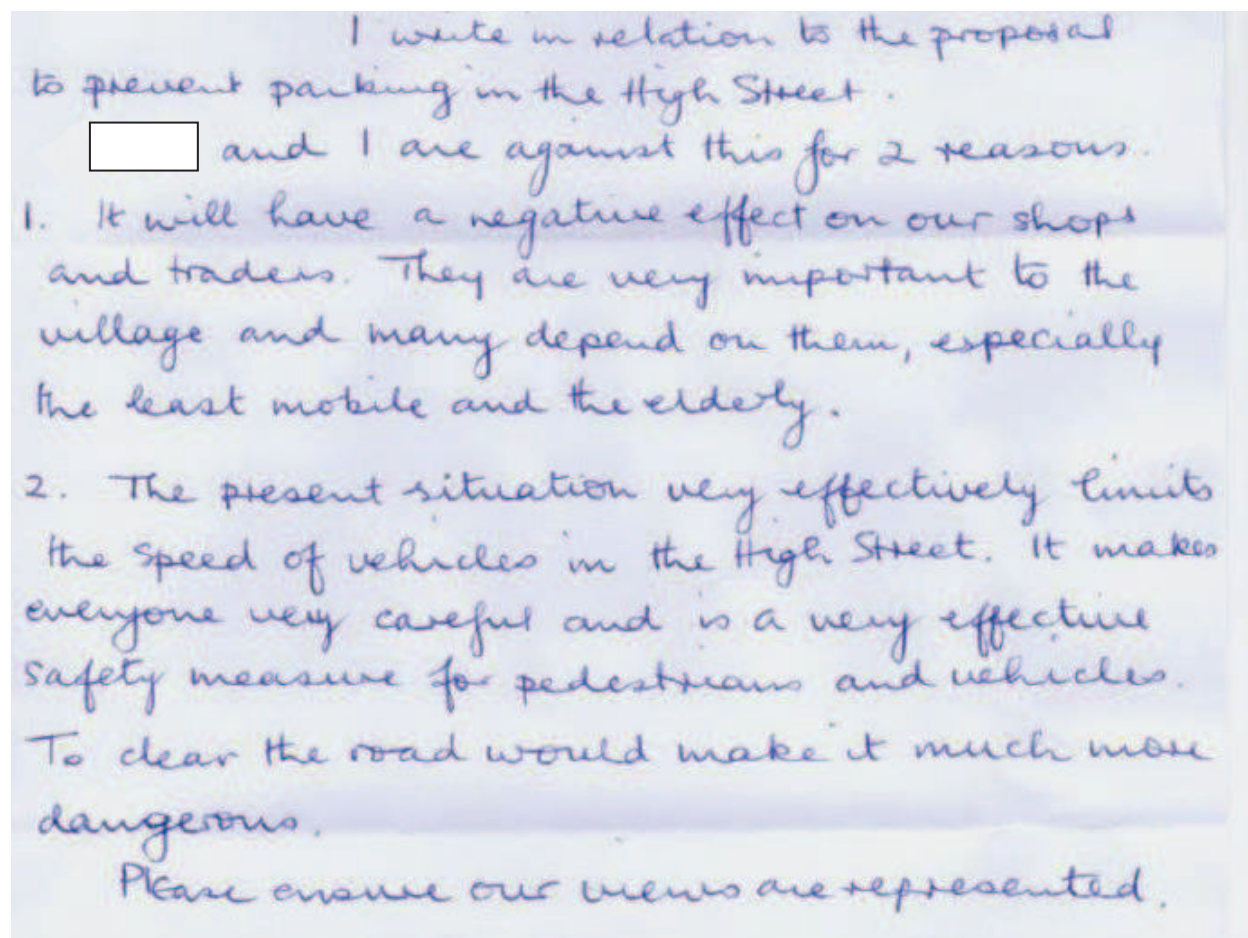 I write in relation to the proposal
to prevent parking in the High Street.
and I are against this for 2 reasons.
1. It will have a negative effect on our shops
and traders. They are very important to the
village and many depend on them, especially
the least mobile and the elderly.
2. The present situation very effectively limits
the speed of vehicles in the High Street. It makes
everyone very careful and is a very effective
safety measure for pedestrians and vehicles.
To clear the road would make it much more
dangerous.
Please ensure our views are represented.